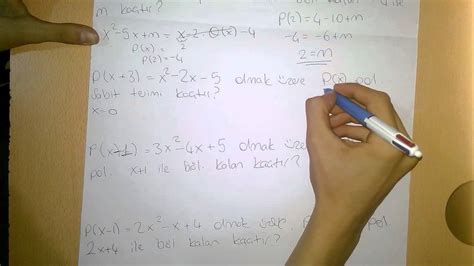 m kaçtır?
x²-5x+m = x-2. Q(x) -4
P(x) = x²
P(2) = -4
P(2) = 4-10+m
-4 = -6+m
2=m
P(x+3) = x²-2x-5 olmak üzere P(x) pol
sabit terimi kaçtır?
x=0
= 3x²-4x+5 olmak üzere
pol. x+1 ile böl. kalan kaçtır?
P(x-1) = 2x²-x+4 olmak üzere, pol.
2x+4 ile böl kalan kaçtır?